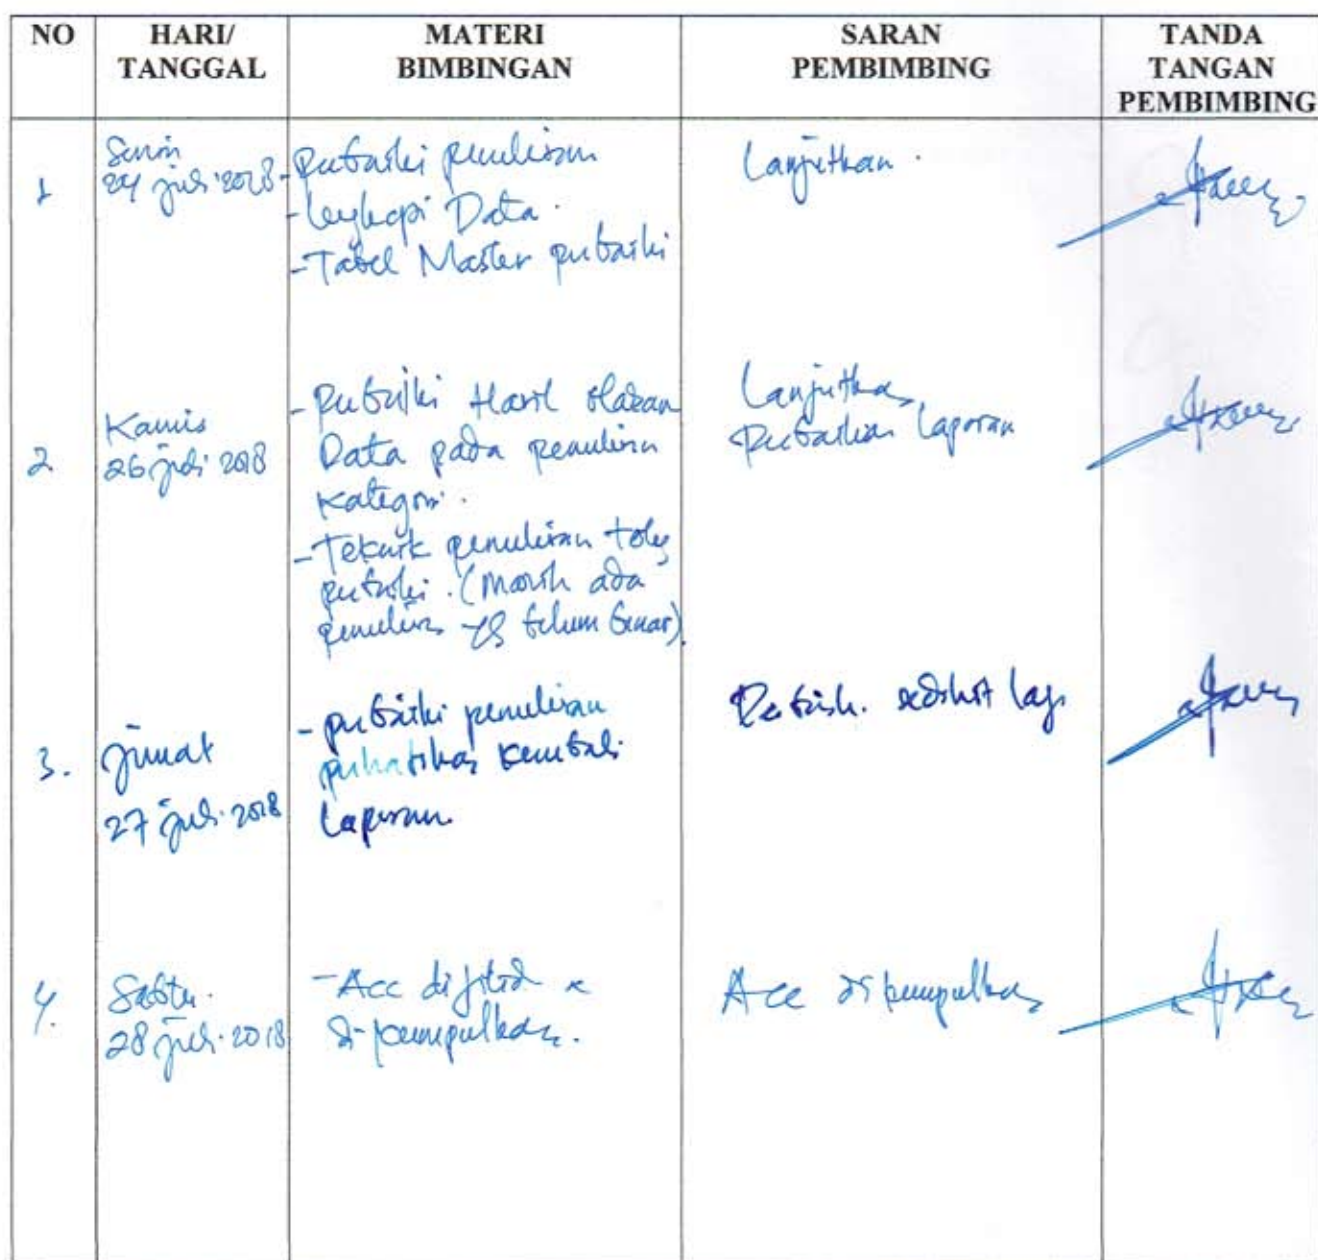 NO
HARI/
TANGGAL
MATERI
BIMBINGAN
SARAN
PEMBIMBING
TANDA
TANGAN
PEMBIMBING
1
Senin
24 juli 2018
- perbaiki penulisan
- lengkapi Data.
- Tabel Master perbaiki
Lanjutkan.
2
Kamis
26 juli 2018
- perbaiki Hasil olahan
Data pada penulisan
kategori.
- Teknik penulisan tolg
perbaiki. (Masih ada
penulisan yg belum benar).
Lanjutkan
Perbaikan Laporan
3.
jumat
27 juli 2018
- perbaiki penulisan
perhatikan kembali
Laporan
Perbaik. sedikit lagi
4.
Sabtu.
28 juli 2018
- Acc dijilid &
di kumpulkan.
Acc di kumpulkan